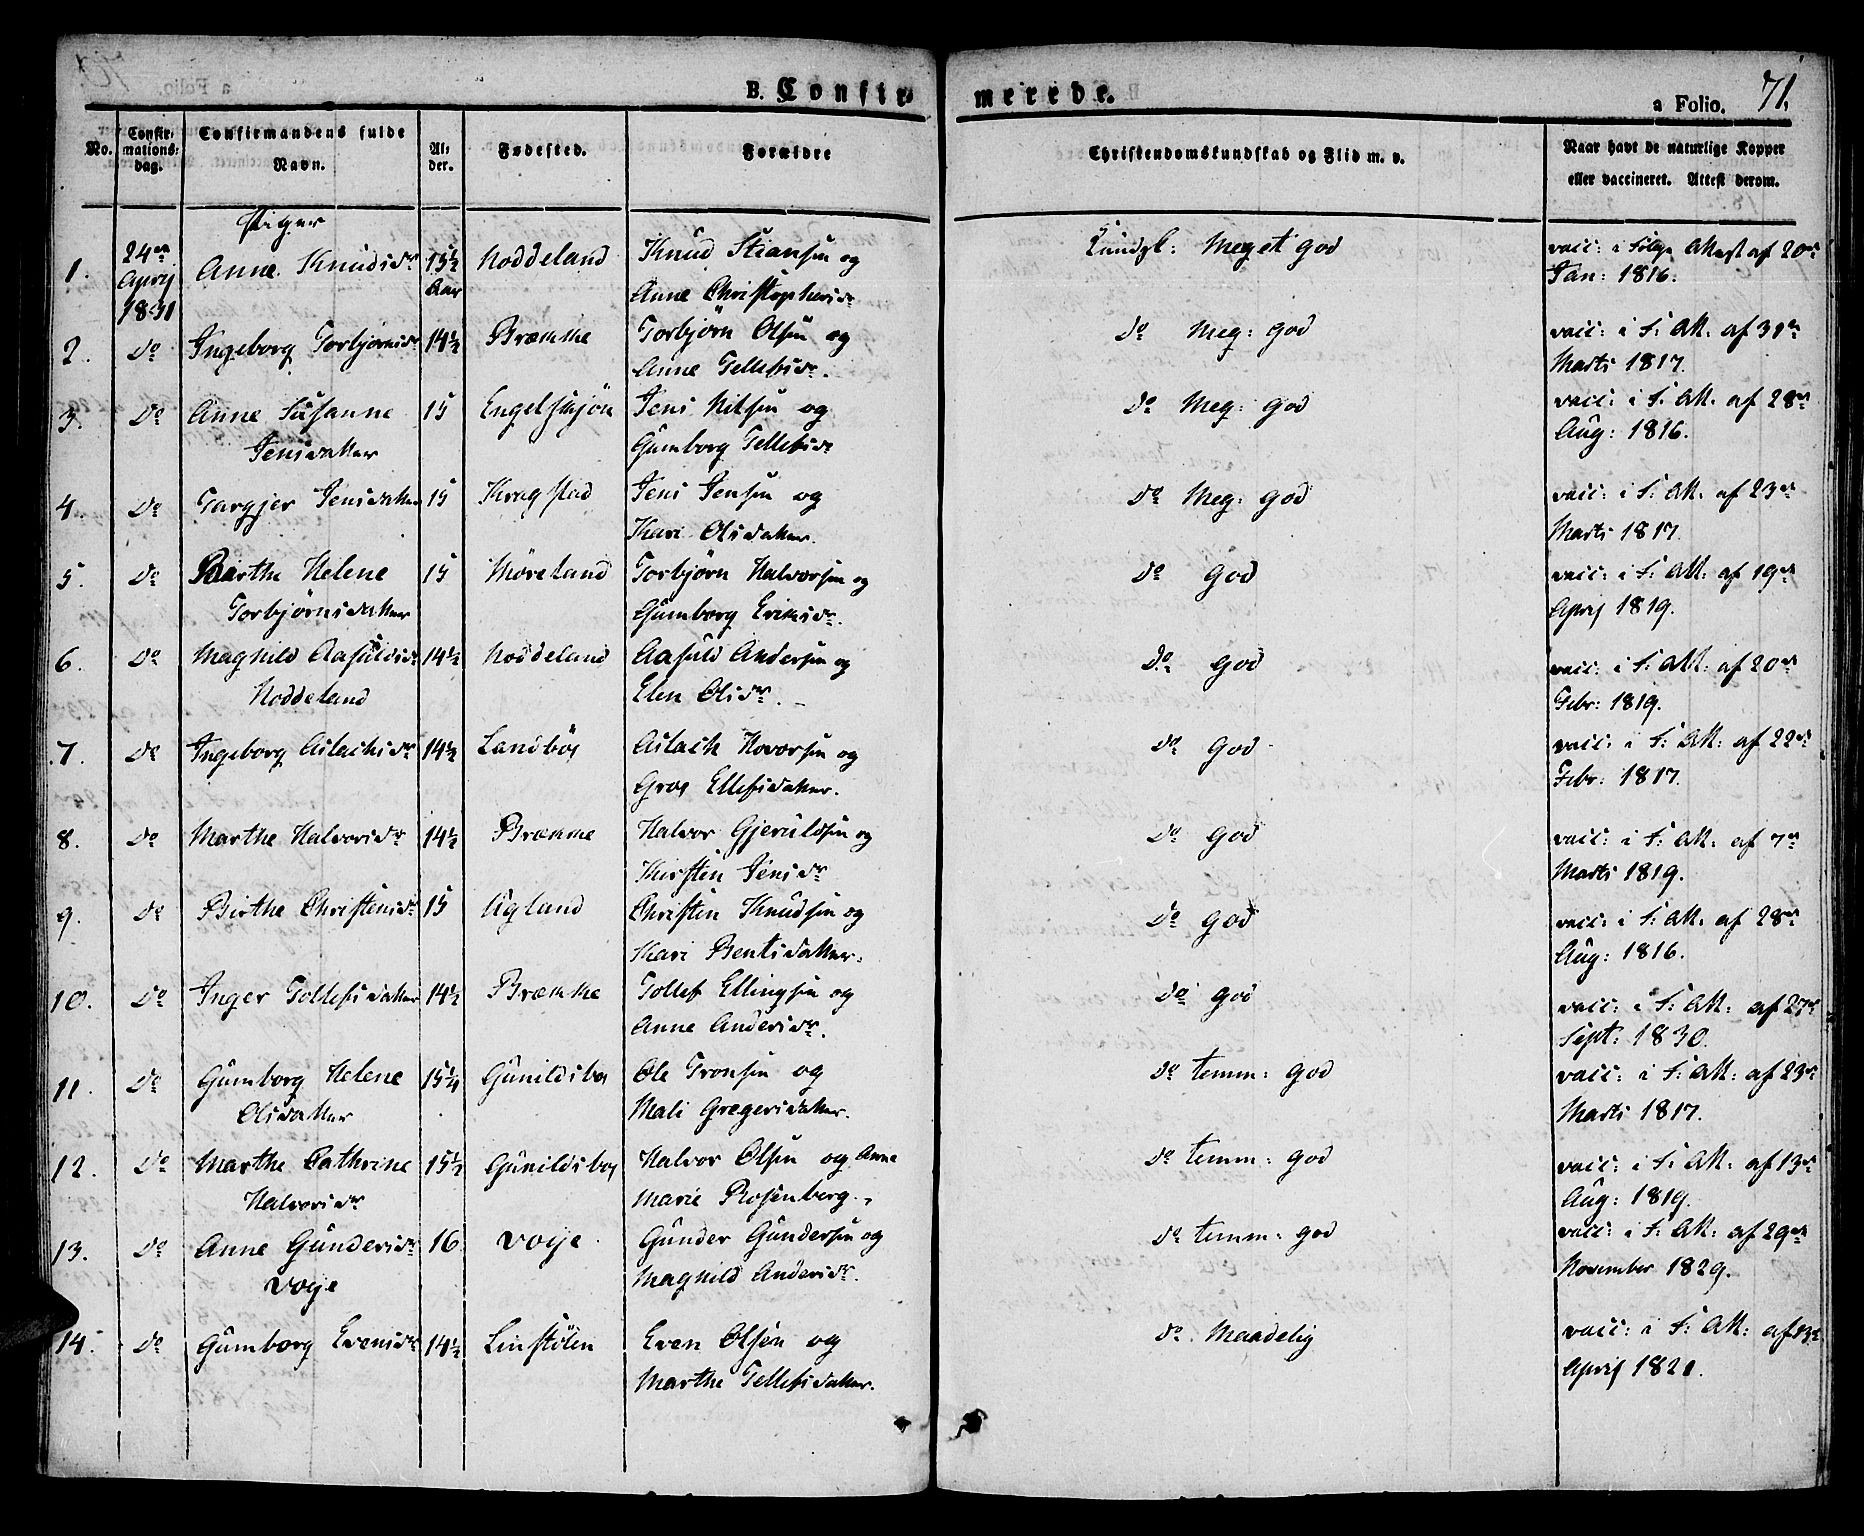 B. Confir merede. a Folio. 71.
No. Confirmations: dag. Confirmandens fulde Navn. Alder. Fødested. Forældre Christendomskundskab og Flid m. v. Naar havt de naturlige Kopper eller vaccineret. Attest derom.
Piger
1. 24de April 1831 Anne Knudsdr 15½ Aar Noddeland Knud Stiansen og Kundsk: Meget god vacc: i Følge Attest af 20de
Anne Christophersdr Jan: 1816.
2. Do Ingeborg Torbjørnsdr 14½ Brække Torbjørn Olsen og Do Meg: god vacc: i F: Att. af 31te
Anne Tellefsdr. Marts 1817.
3. Do Anne Susanne 15 Engelshjøn Jens Nilsen og Do Meg: god vacc: i F. Att. af 28de
Jensdatter Gumborg Tellefsdr Aug: 1816.
4. Do Targjer Jensdatter 15 Kragstad Jens Jensen og Do Meg: god vacc: i F: Att. af 23de
Kari Olsdatter. Marts 1817.
5. Do Barthe Helene 15 Møreland Torbjørn Halvorsen og Do god vacc: i F: Att: af 19de
Torbjørnsdatter Gumborg Eriksdr. April 1819.
6. Do Magnild Aasuldsdr 14½ Noddeland Aasuld Andersen og Do god vacc: i F: Att: af 20de
Noddeland Elen Olsdr. Febr: 1819.
7. Do Ingeborg Aslachsdr 14½ Landbøe Aslach Hovorsen og Do god vacc: i F: Att: af 22de
Groe Ellefsdatter. Febr: 1817.
8. Do Marthe Halvorsdr 14½ Brække Halvor Gjeruldsen og Do god vacc: i F: Att. af 7de
Kirsten Jensdr Marts 1819.
9. Do Birthe Christensdr 15 Ugland Christen Knudsen og Do god vacc: i F: Att. af 28de
Kari Bentsdatter. Aug: 1816.
10. Do Inger Tollefsdatter 14½ Brække Tollef Ellingsen og Do god vacc: i F: Att: af 27de
Anne Andersdr. Sept: 1830.
11. Do Gumborg Helene 15¼ Gunildsboe Ole Tronsen og Do temm: god vacc: i F: Att: af 23de
Olsdatter Mali Gregersdatter. Marts 1817.
12. Do Marthe Cathrine 15½ Gunildsboe Halvor Olsen og Anne Do temm: god vacc: i F: Att. af 13de
Halvorsdr Marie Rosenberg. Aug: 1819.
13. Do Anne Gundersdr 16 Voije Gunder Gundersen og Do temm: god vacc: i F: Att: af 29de
Voije Magnild Andersdr. November 1829.
14. Do Gumborg Evensdr 14½ Linstølen Even Olsen og Do Maadelig vacc: i F: Att: af
Marthe Tellefsdatter. April 1821.